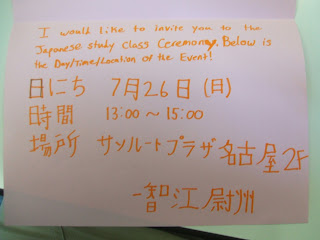 I would like to invite you to the
Japanese study class Ceremony. Below is
the Day/Time/Location of the Event!
日にち 7月26日(日)
時間 13:00～15:00
場所 サンルートプラザ名古屋2F
智江尉州